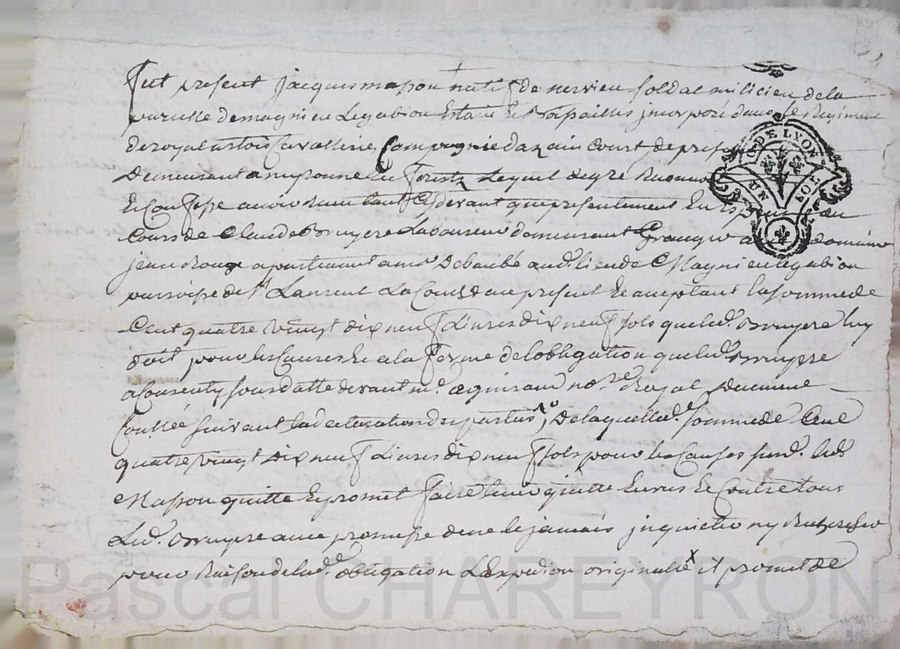 fut present Jacques masson natif de nervieu soldat milicien de la
paroisse de magnieu le gabion Estant Et incorporé dans le Regiment
de royal artois Cavallerie Compagnie dazaincourt de present
demeurant a en forestz lequel de gre
Et Confesse avoir Ceydevant quy presentement En
Cours de Claude Bruyere Laboureur demeurant Granger a domaine
jean Rouge apartenant a mr au lieu de Magnieu le gabion
parroisse de st Laurent La Conche present Et aceptant la somme de
Cent quatre vingt dix neuf Livres dix neuf sols que led. Bruyere luy
doit pour les Causes Et a la forme de lobligation que led. Bruyere
a Consenty sous datte devant me no.re Royal
suivant la declaration des parties De laquelle d. somme de Cent
quatre vingt dix neuf Livres dix neuf sols pour les Causes sus d. led.
Masson quitte Et promet faire tenir quitte Envers Et Contre tous
Led. Bruyere avec promesse de ne le jamais inquieter ny Rechercher
pour Raison de lad. obligation L'Expedion originalle x il promet de
G. DE LYON
UN SOL
Pascal CHAREYRON